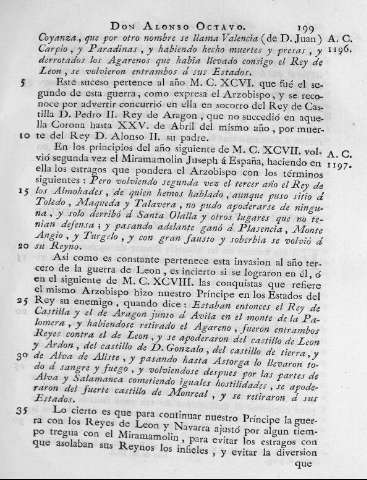 DON ALONSO OCTAVO. 199
Coyanza, que por otro nombre se llama Valencia (de D. Juan) A. C.
Carpio, y Paradinas, y habiendo hecho muertes y presas, y 1196.
derrotados los Agarenos que habia llevado consigo el Rey de
Leon, se volvieron entrambos á sus Estados.
5 Este suceso pertenece al año M. C. XCVI. que fué el se-
gundo de esta guerra, como expresa el Arzobispo, y se reco-
noce por advertir concurrió en ella en socorro del Rey de Cas-
tilla D. Pedro II. Rey de Aragon, que no sucedió en aque-
lla Corona hasta XXV. de Abril del mismo año, por muer-
10 te del Rey D. Alonso II. su padre.
En los principios del año siguiente de M. C. XCVII. vol- A. C.
vió segunda vez el Miramamolin Juseph á España, haciendo en 1197.
ella los estragos que pondera el Arzobispo con los términos
siguientes: Pero volviendo segunda vez el tercer año el Rey de
15 los Almohades, de quien hemos hablado, aunque puso sitio á
Toledo, Maqueda y Talavera, no pudo apoderarse de ningu-
na, y solo derribó á Santa Olalla y otros lugares que no te-
nian defensa; y pasando adelante ganó á Plasencia, Monte
Angio, y Turgelo, y con gran fausto y soberbia se volvió á
20 su Reyno.
Asi como es constante pertenece esta invasion al año ter-
cero de la guerra de Leon, es incierto si se lograron en él, ó
en el siguiente de M. C. XCVIII. las conquistas que refiere
el mismo Arzobispo hizo nuestro Príncipe en los Estados del
25 Rey su enemigo, quando dice: Estaban entonces el Rey de
Castilla y el de Aragon junto á Avila en el monte de la Pa-
lomera, y habiendose retirado el Agareno, fueron entrambos
Reyes contra el de Leon, y se apoderaron del castillo de Leon
y Ardon, del castillo de D. Gonzalo, del castillo de tierra, y
30 de Alva de Aliste, y pasando hasta Astorga lo llevaron to-
do á sangre y fuego, y volviendose despues por las partes de
Alva y Salamanca cometiendo iguales hostilidades, se apode-
raron del fuerte castillo de Monreal, y se retiraron á sus
Estados.
35 Lo cierto es que para continuar nuestro Príncipe la guer-
ra con los Reyes de Leon y Navarra ajustó por algun tiem-
po tregua con el Miramamolin, para evitar los estragos con
que asolaban sus Reynos los infieles, y evitar la diversion
que